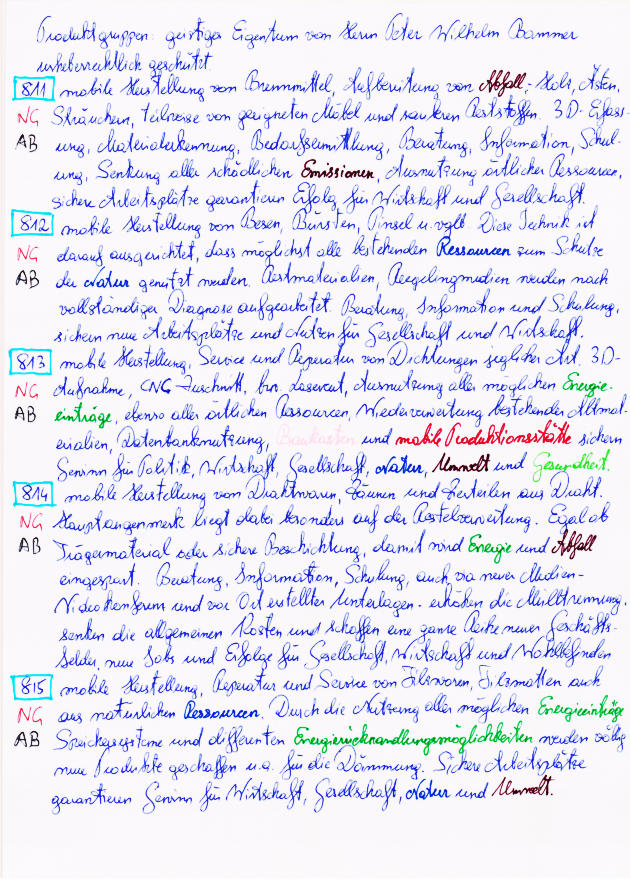 Produktgruppen: geistiges Eigentum von Herrn Peter Wilhelm Bammer
urheberrechtlich geschützt
811 mobile Herstellung von Brennmittel, Aufbereitung von Abfall; Holz, Ästen,
NG Sträuchern, teilweise von geeigneten Möbel und sauberen Reststoffen. 3D-Erfass-
AB ung, Materialerkennung, Bedarfsermittlung, Beratung, Information, Schul-
ung, Senkung aller schädlichen Emissionen, Ausnutzung örtlicher Ressourcen,
sichere Arbeitsplätze garantieren Erfolg für Wirtschaft und Gesellschaft.
812 mobile Herstellung von Besen, Bürsten, Pinsel u. vglb. Diese Technik ist
NG darauf ausgerichtet, dass möglichst alle bestehenden Ressourcen zum Schutze
AB der Natur genützt werden. Restmaterialien, Recyclingmedien werden nach
vollständiger Diagnose aufgearbeitet. Beratung, Information und Schulung,
sichern neue Arbeitsplätze und Nutzen für Gesellschaft und Wirtschaft.
813 mobile Herstellung, Service und Reparatur von Dichtungen jeglicher Art. 3D-
NG Aufnahme, CNC-Zuschnitt, bzw. Lasercut, Ausnutzung aller möglichen Energie-
AB einträge, ebenso aller örtlichen Ressourcen, Wiederverwertung bestehender Altmat-
erialien, Datenbanknutzung, Baukasten und mobile Produktionsstätte sichern
Gewinn für Politik, Wirtschaft, Gesellschaft, Natur, Umwelt und Gesundheit.
814 mobile Herstellung von Drahtwaren, Zäunen und Zierteilen aus Draht.
NG Hauptaugenmerk liegt dabei besonders auf der Restelverwertung. Egal ob
AB Trägermaterial oder sichere Beschichtung, damit wird Energie und Abfall
eingespart. Beratung, Information, Schulung, auch via neuer Medien-
Videokonferenz und vor Ort erstellter Unterlagen- erhöhen die Mülltrennung,
senken die allgemeinen Kosten und schaffen eine ganze Reihe neuer Geschäfts-
felder, neue Jobs und Erfolge für Gesellschaft, Wirtschaft und Wohlbefinden
815 mobile Herstellung, Reparatur und Service von Filzwaren, Filzmatten auch
NG aus natürlichen Ressourcen. Durch die Nutzung aller möglichen Energieeinträge
AB Speichersysteme und differenten Energierückwandlungsmöglichkeiten werden völlig
neue Produkte geschaffen u.a. für die Dämmung. Sichere Arbeitsplätze
garantieren Gewinn für Wirtschaft, Gesellschaft, Natur und Umwelt.